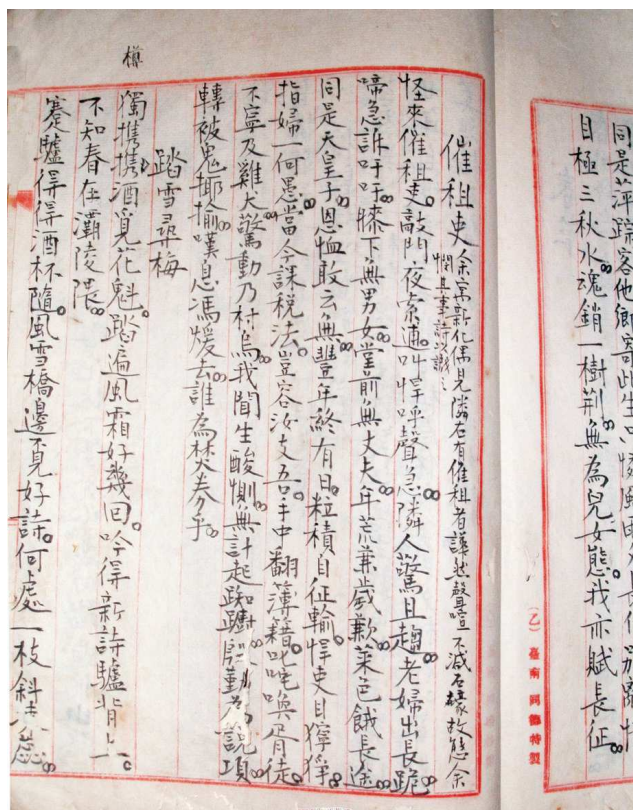 同是萍踪客他鄉寄此生
目極三秋水魂銷一樹荊無為兒女態我亦賦長征
(乙) 臺南 特製
樽
催租吏 余寓新化偶見隣右有催租者譁然聲喧不減石壕故態余
憫其事詩以誌之
怪來催租吏。敲門夜索逋。叫悍呼聲急。隣人驚且趨。老婦出長跪。
啼急訴吁吁。膝下無男女。堂前無丈夫。年荒兼歲歉。菜色餓長途。
同是天皇子。恩恤敢云無。豐年終有日。粒積自征輸。悍吏目獰猙。
指婦一何愚。當今課税法。豈容汝支吾。手中翻簿籍。叱咤喚胥徒。
不寧及雞犬。驚動乃村烏。我聞生酸惻。無計起踟躕。殷勤為說項。
轉被鬼揶揄。嘆息馮煖去。誰為焚券乎。
踏雪尋梅
獨携携酒覓花魁。踏遍風霜好幾回。吟得新詩驢背上。
不知春在灞陵隈。
蹇驢得得酒杯隨。風雪橋邊覓好詩。何處一枝斜